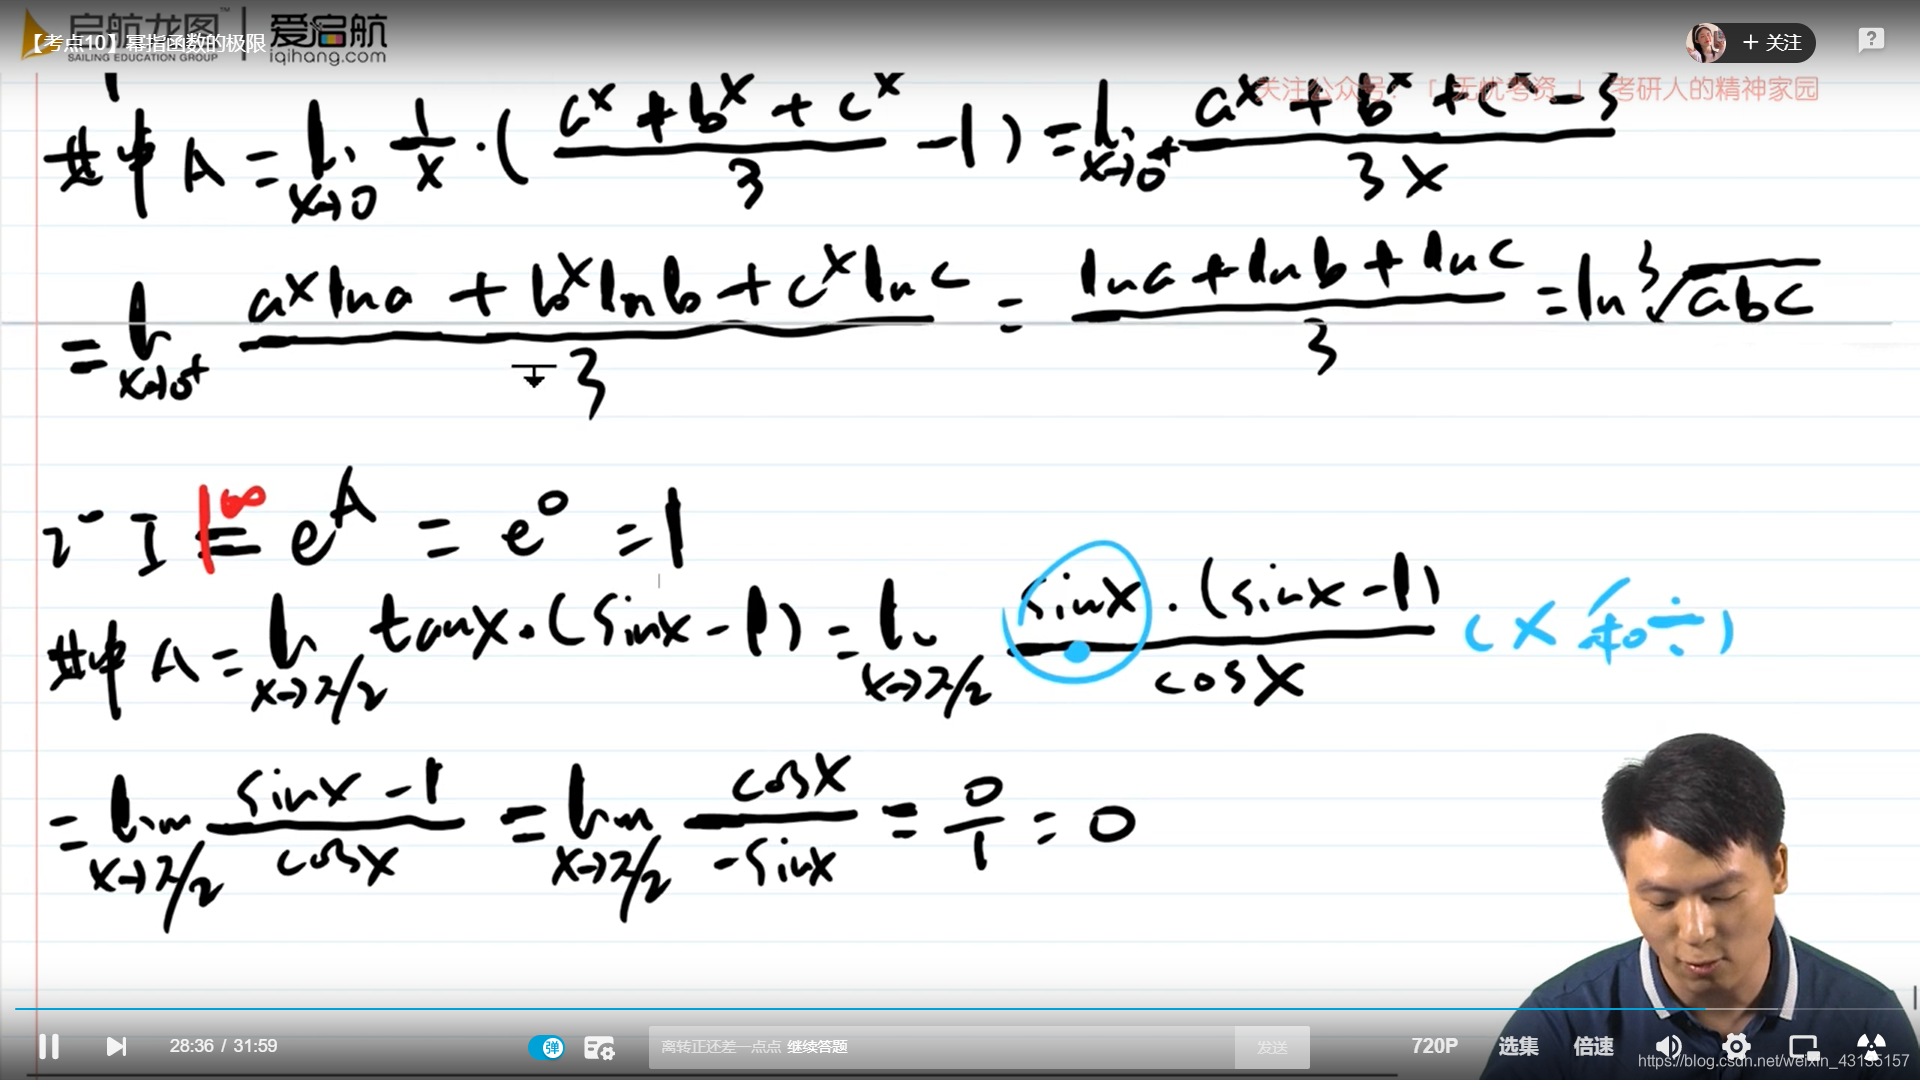 启航龙图™ 爱启航
SAILING EDUCATION GROUP iqihang.com
【考点10】幂指函数的极限
+ 关注
?
关注公众号：「无忧考资」 考研人的精神家园
其中 A = lim x→0 1/x · ( (a^x + b^x + c^x)/3 - 1 ) = lim x→0⁺ (a^x + b^x + c^x - 3)/(3x)
= lim x→0⁺ (a^x ln a + b^x ln b + c^x ln c)/3 = (ln a + ln b + ln c)/3 = ln ³√(abc)
2° I = e^A = e^0 = 1
1^∞
其中 A = lim x→π/2 tanx · (sinx - 1) = lim x→π/2 sinx · (sinx - 1)/cosx (× 和 ÷)
= lim x→π/2 (sinx - 1)/cosx = lim x→π/2 cosx/(-sinx) = 0/1 = 0
28:36 / 31:59
弹
离转正还差一点点 继续答题
发送
720P
选集
倍速
https://blog.csdn.net/weixin_43135157